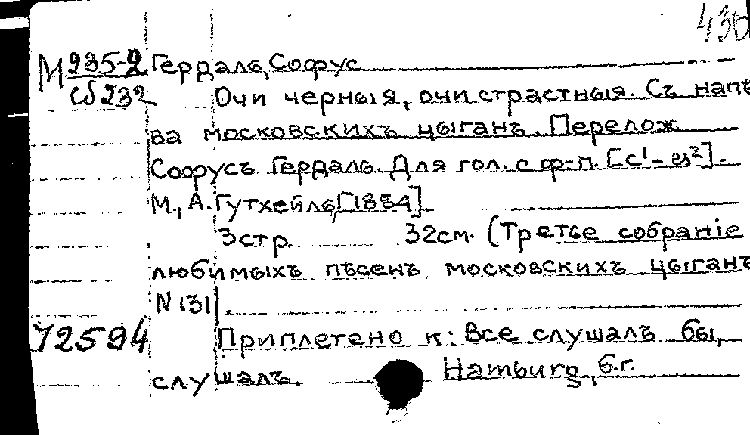 430
М 935-2 Гердаль, Софус
сб 232 Очи черныя, очи страстныя. Съ напѣ
ва московскихъ цыганъ. Перелож.
Софусъ Гердаль. Для гол. с ф-п. [с¹-es²].-
М., А. Гутхейль, [1884]
3 стр. 32см. (Третье собраніе
любимыхъ пѣсенъ московскихъ цыганъ
N 131).
72594 Приплетено к: Все слушалъ бы,
слушалъ. Hamburg, б.г.